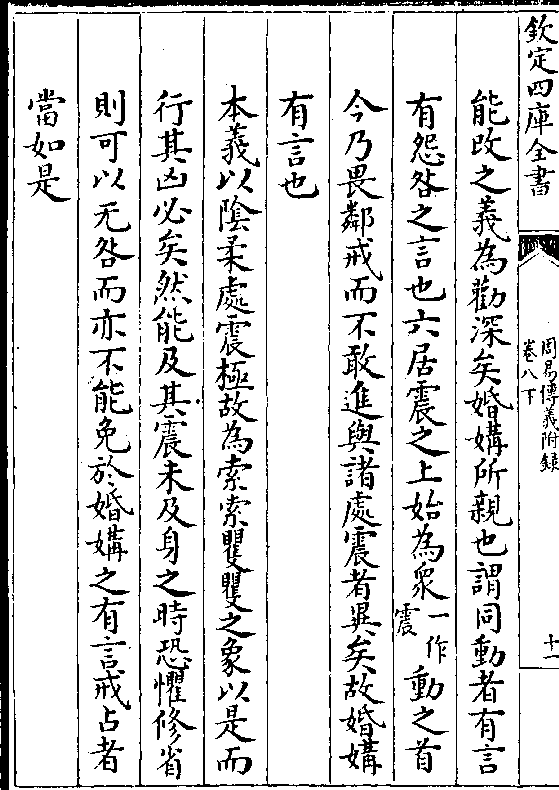 欽定四庫全書
周易傳義附録
卷八下
十一
能改之義為勸深矣婚媾所親也謂同動者有言
有怨咎之言也六居震之上始為衆一作震動之首
今乃畏鄰戒而不敢進與諸處震者異矣故婚媾
有言也
本義以陰柔處震極故為索索矍矍之象以是而
行其凶必矣然能及其震未及身之時恐懼修省
則可以无咎而亦不能免於婚媾之有言戒占者
當如是